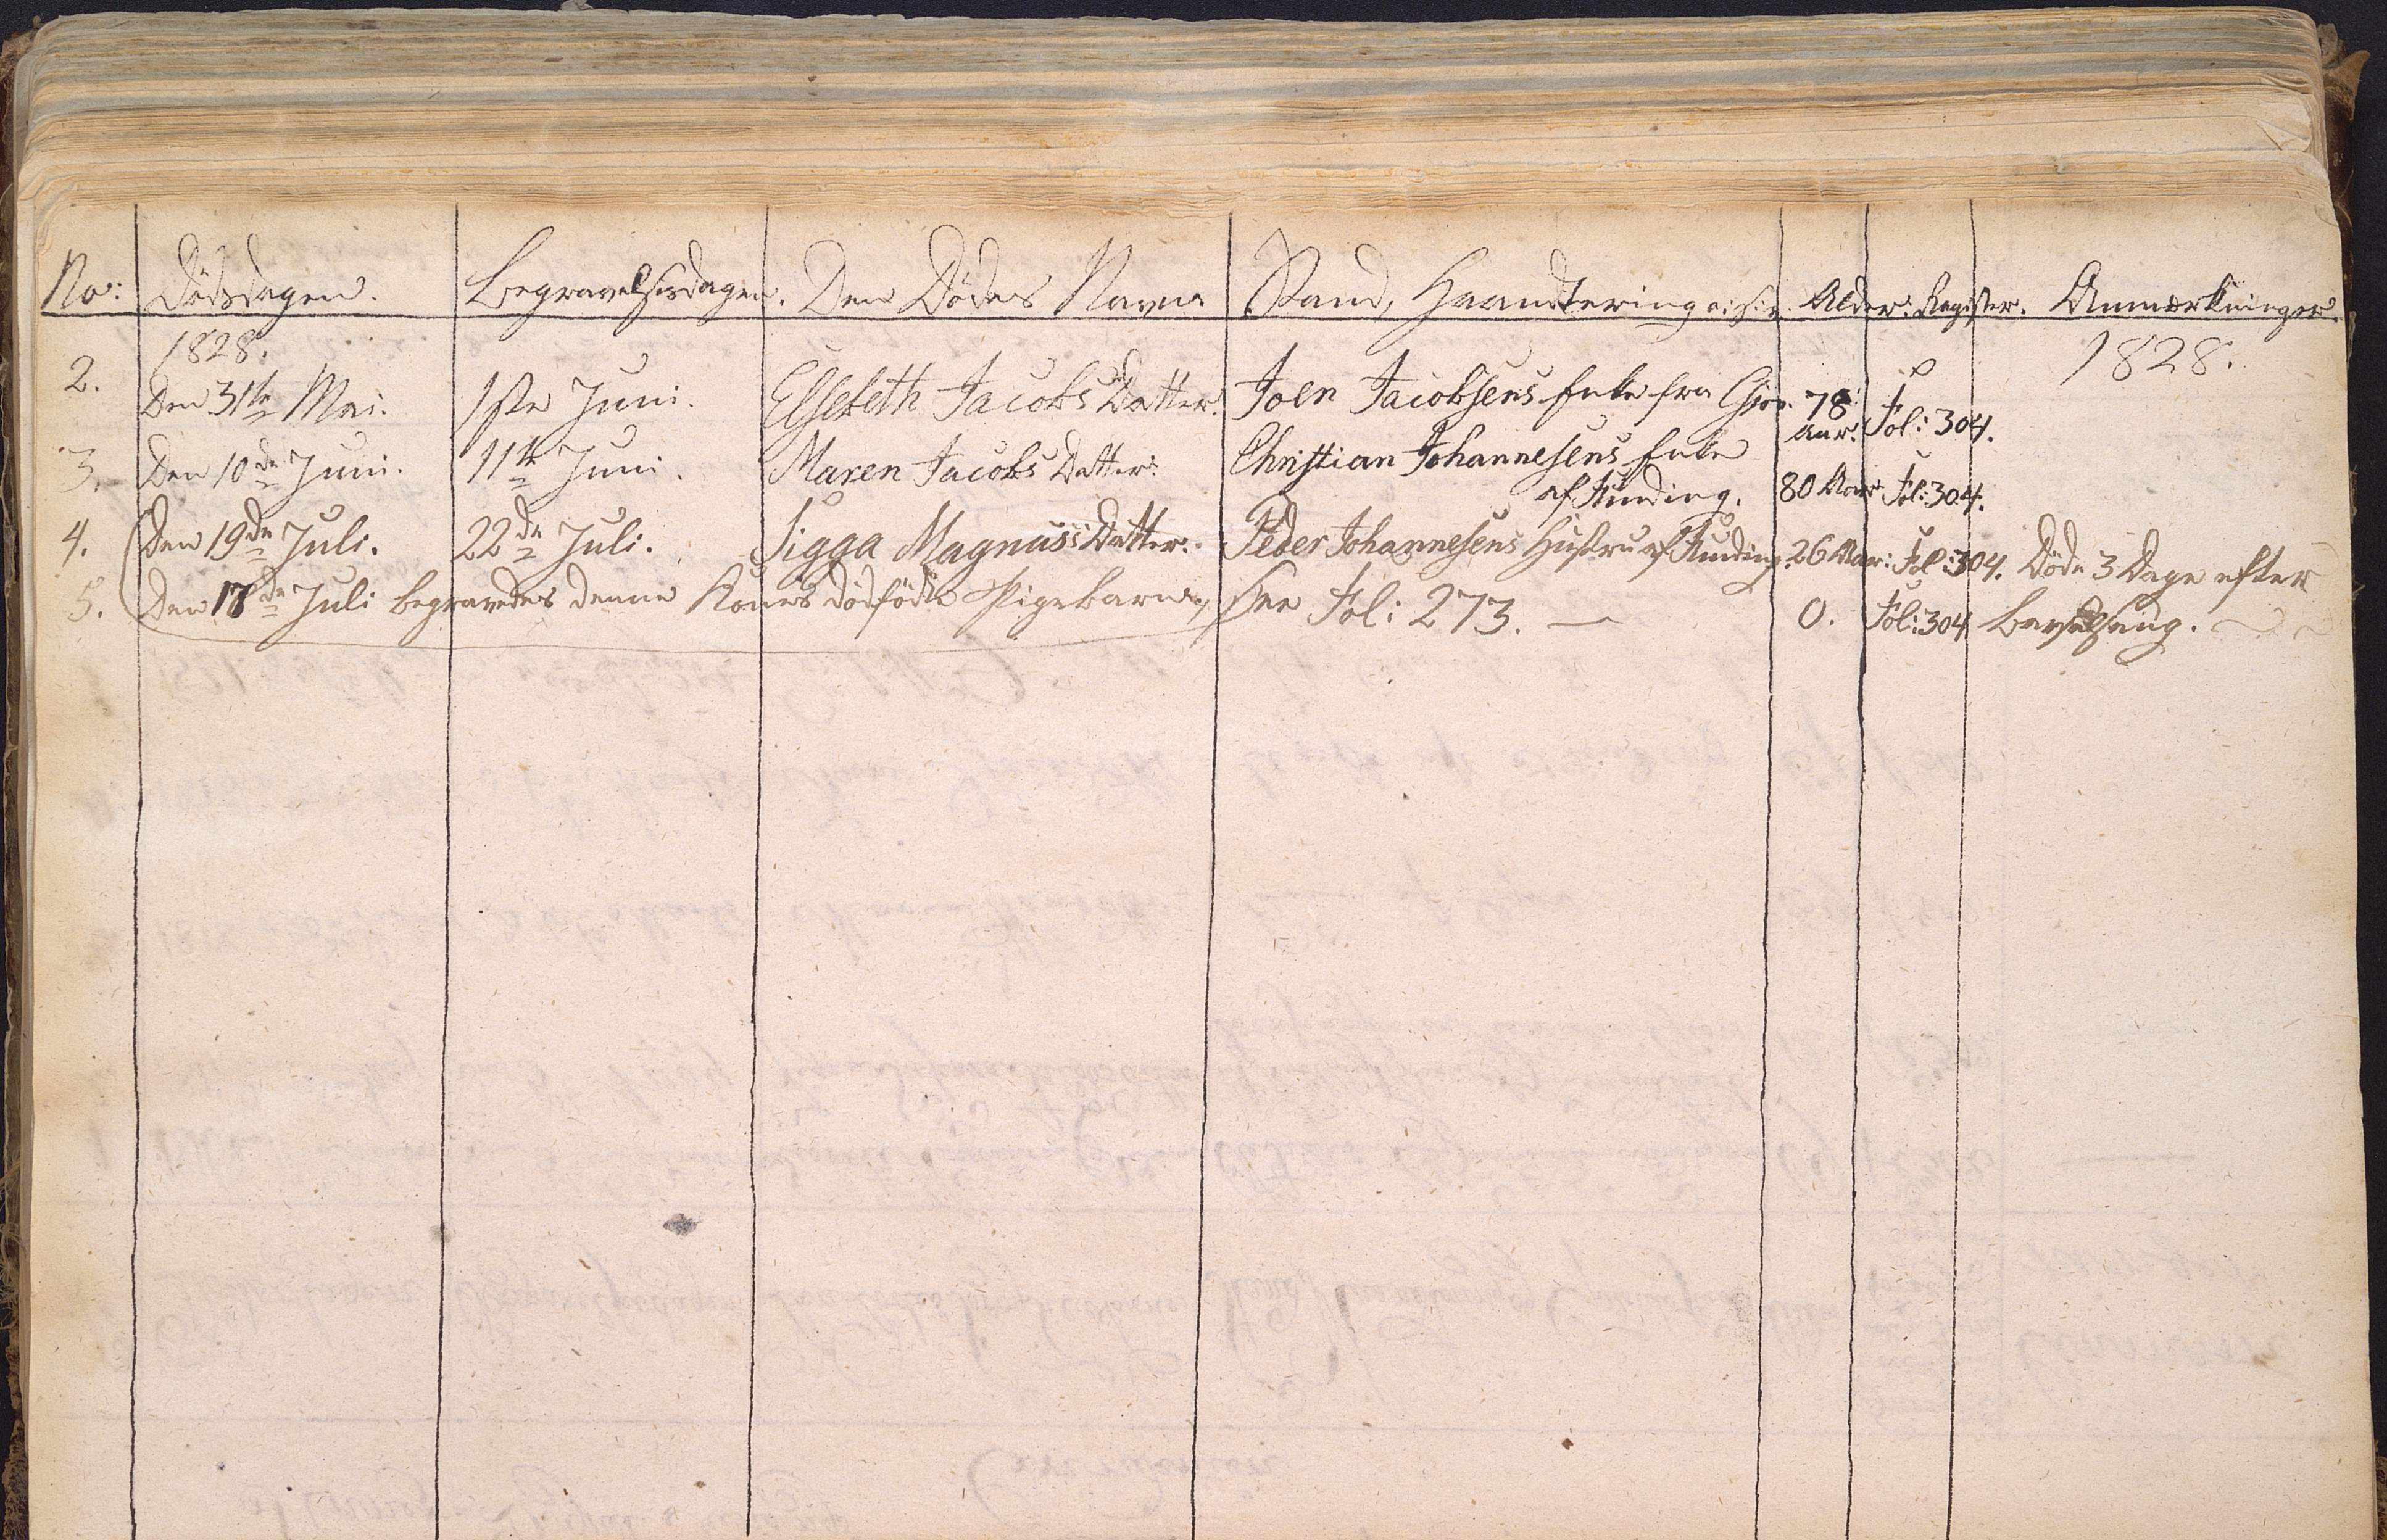 No: Dödsdagen. Begravelsesdagen. Den Dödes Navn Stand, Haandtering o: s: v. Alder: Register. Anmærkninger.
1828. 1828.
2. Den 31te Mai. 1ste Juni. Elsebeth Jacobs Datter. Joen Jacobsens Enke fra Gjov. 78 Aar. Fol: 304.
3. Den 10de Juni. 11te Juni. Maren Jacobs Datter. Christian Johannesens Enke
af Funding. 80 Aar Fol: 304.
4. Den 19de Juli. 22de Juli. Sigga Magnus's Datter. Peder Johannesens Hustru af Funding. 26 Aar: Fol: 304. Döde 3 Dage efter
5. Den 18de Juli begravedes denne Kones dödfödte Pigebarn, See Fol: 273. — 0. Fol: 304 Barselseng.